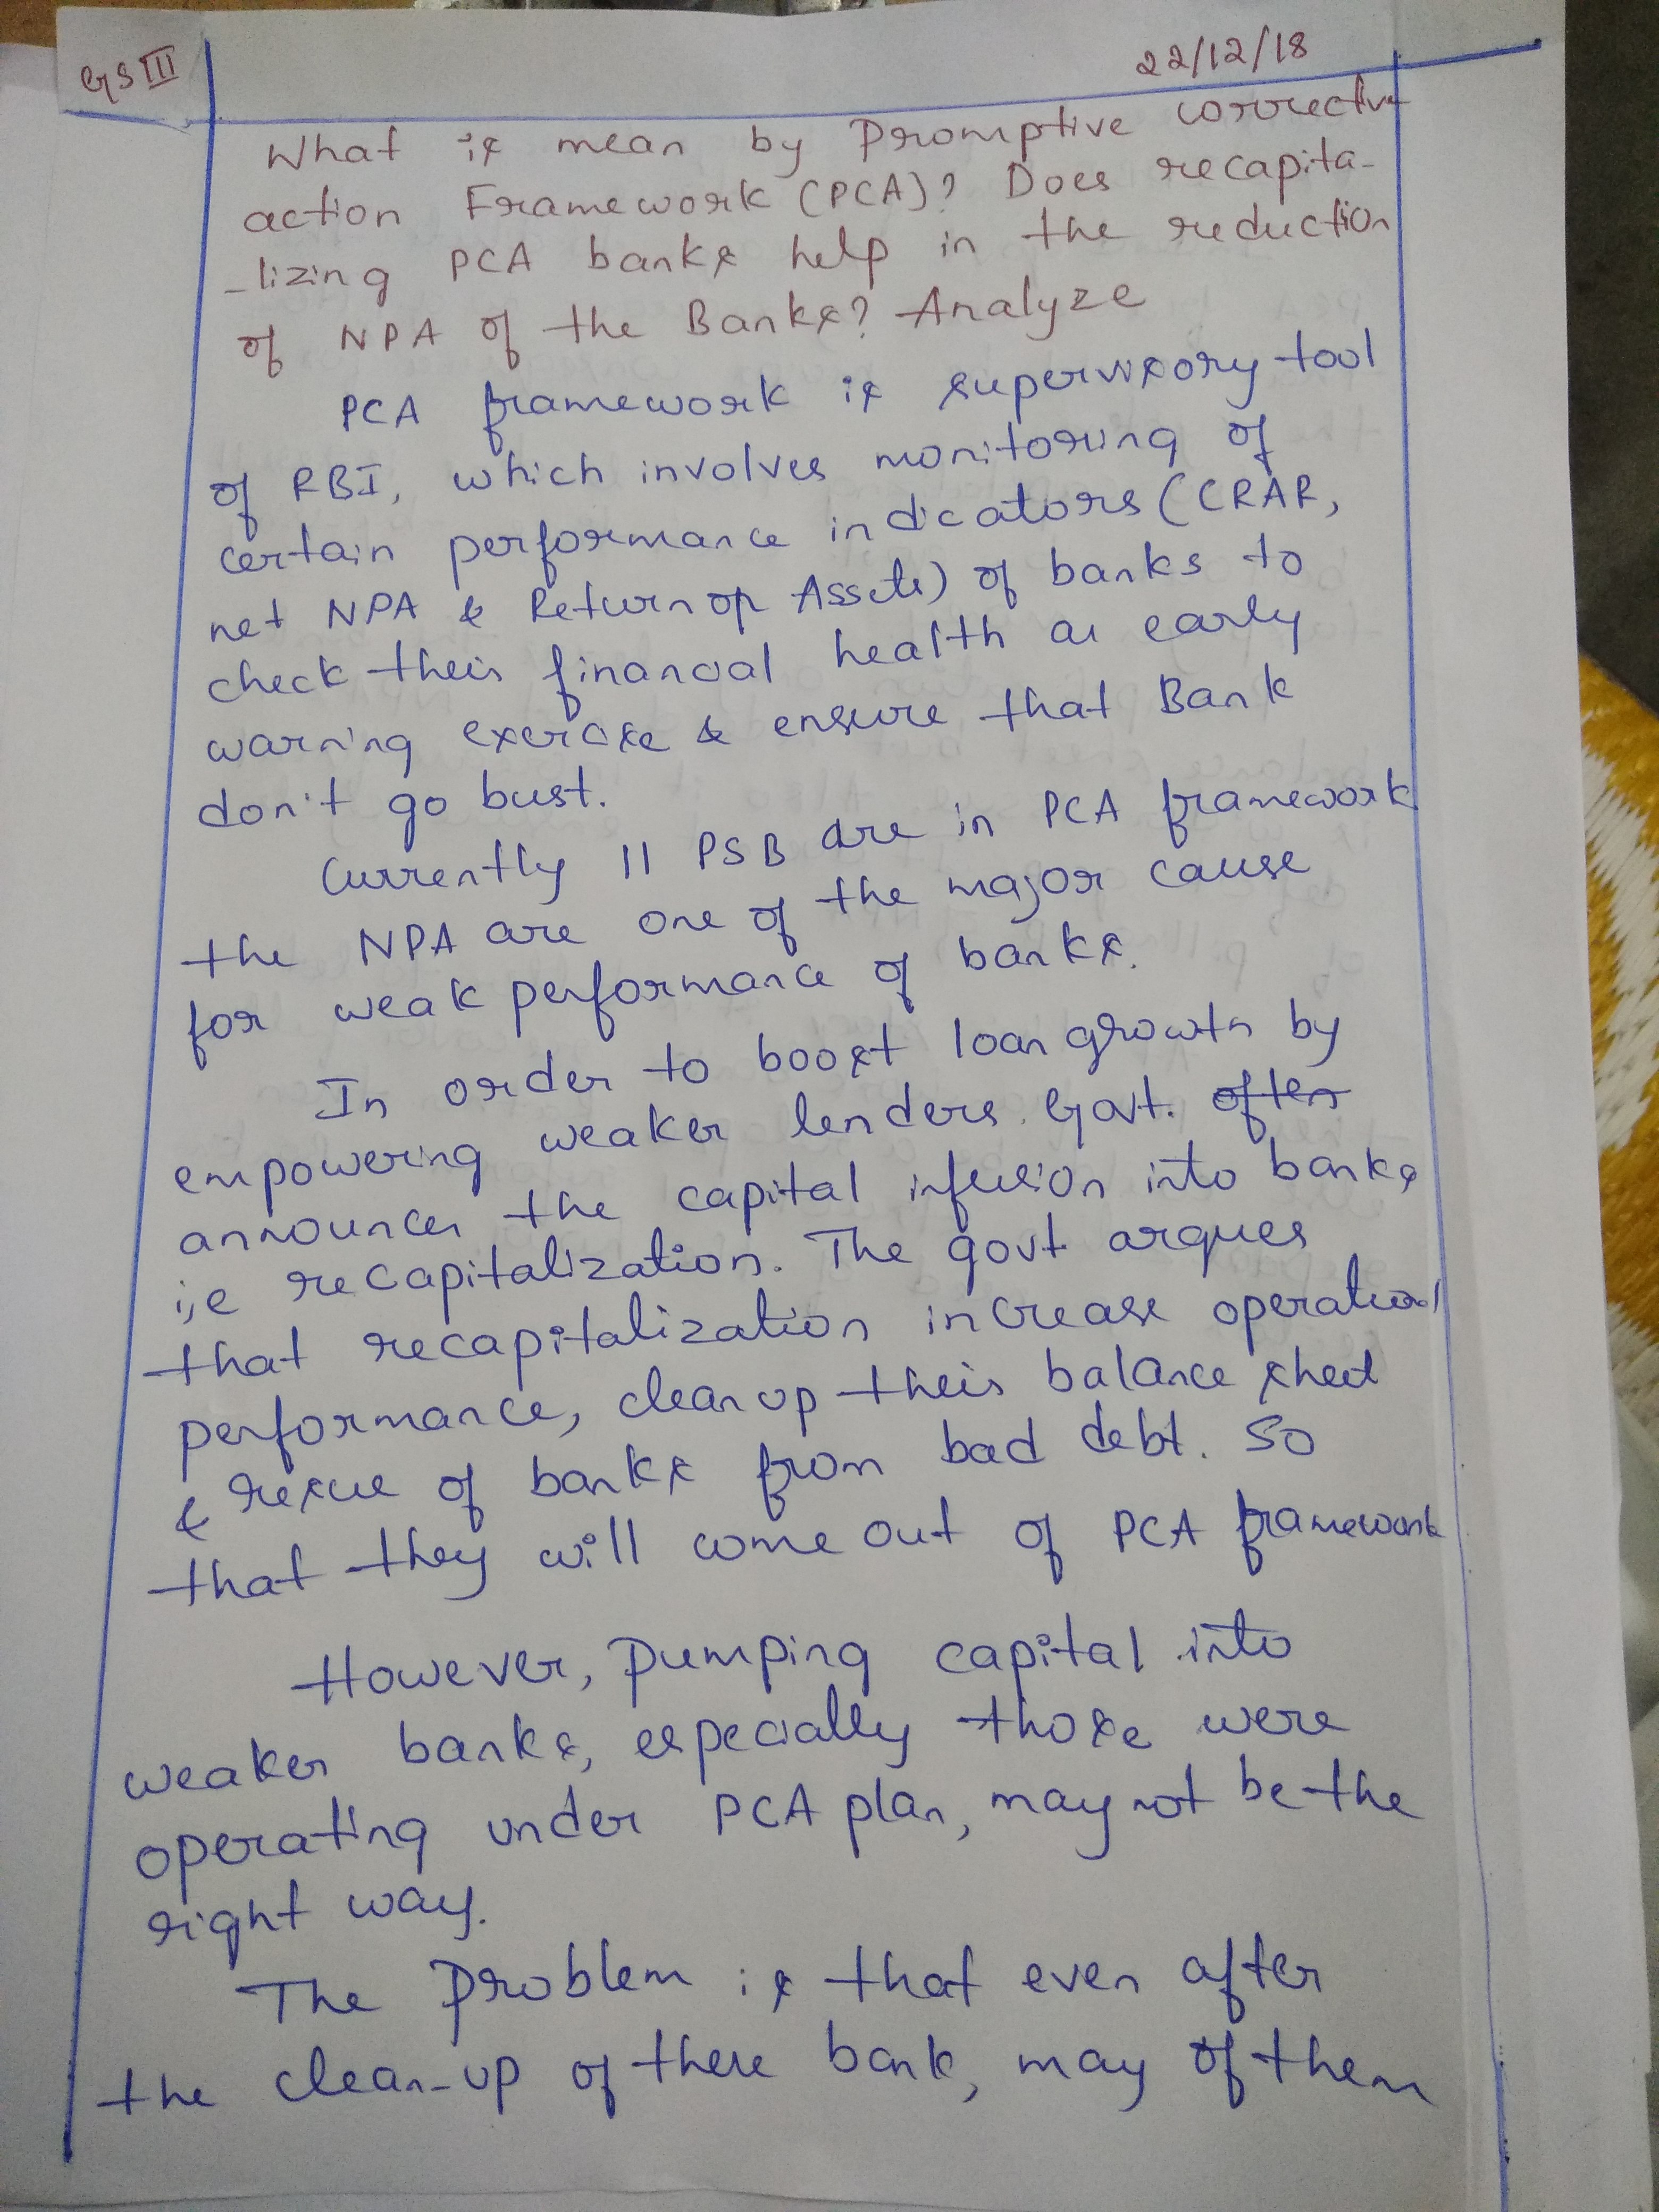 GS III
22/12/18
What is mean by Promptive corrective
action Framework (PCA)? Does recapita-
-lizing PCA banks help in the reduction
of NPA of the Banks? Analyze
PCA framework is supervisory tool
of RBI, which involves monitoring of
certain performance indicators (CRAR,
net NPA & Return op Assets) of banks to
check their financial health as early
warning exercise & ensure that Bank
don't go bust.
Currently 11 PSB are in PCA framework
the NPA are one of the major cause
for weak performance of banks.
In order to boost loan growth by
empowering weaker lenders. Govt. often
announces the capital infusion into banks
i,e recapitalization. The govt argues
that recapitalization increase operational
performance, clean up their balance sheet
& rescue of banks from bad debt. So
that they will come out of PCA framework
However, pumping capital into
weaker banks, especially those were
operating under PCA plan, may not be the
right way.
The problem is that even after
the clean-up of these bank, may of them